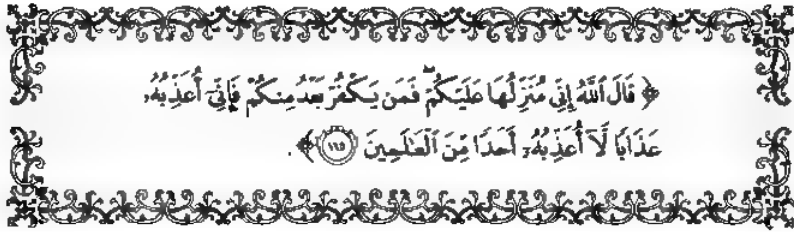 ﴿ قَالَ ٱللَّهُ إِنِّي مُنَزِّلُهَا عَلَيْكُمْۖ فَمَن يَكْفُرْ بَعْدُ مِنكُمْ فَإِنِّيٓ أُعَذِّبُهُۥ
عَذَابًا لَّآ أُعَذِّبُهُۥٓ أَحَدًا مِّنَ ٱلْعَٰلَمِينَ ١١٥ ﴾ .